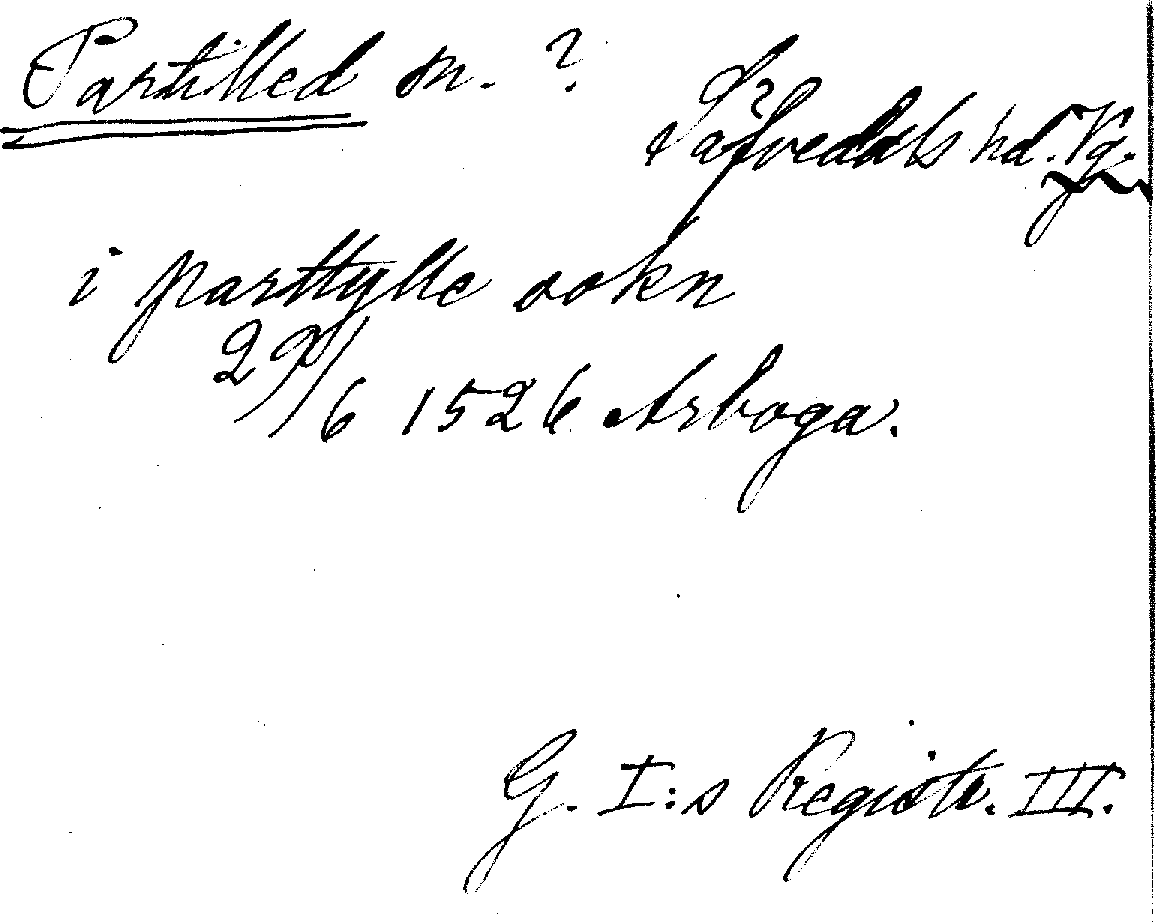 Partilled sn. ?
Säfvedals hd. Vg.
i parttylle sokn
29/6 1526 Arboga.
G. I:s Registr. III.